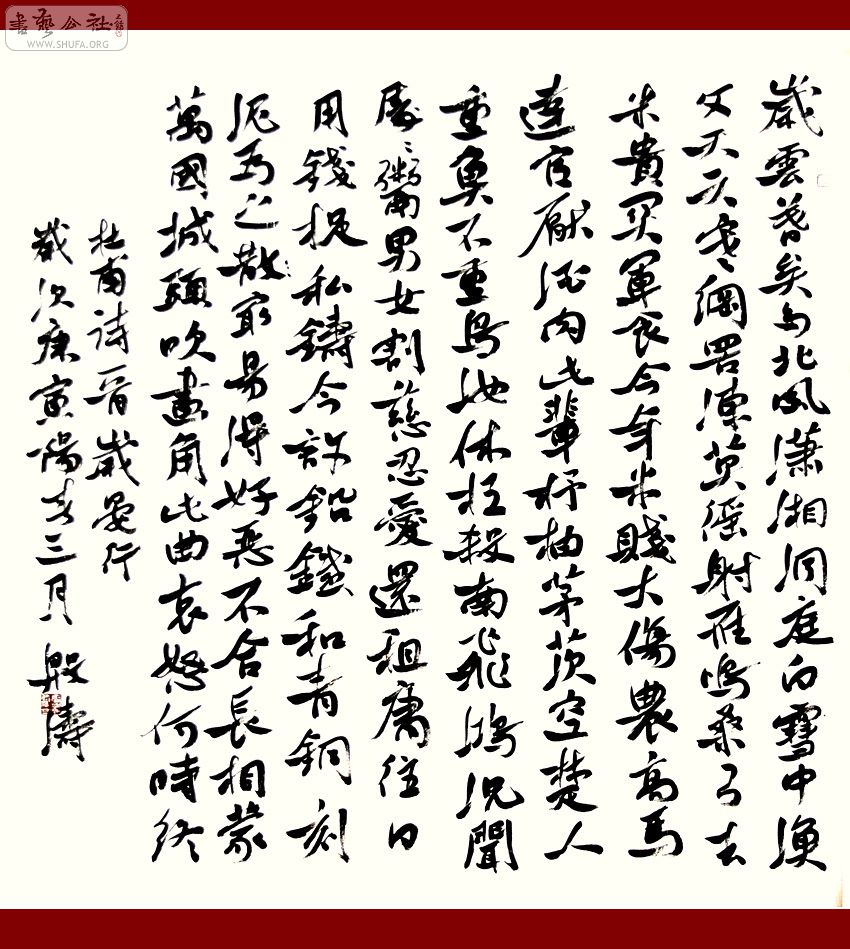 書藝公社
WWW.SHUFA.ORG
歲雲暮矣多北風瀟湘洞庭白雪中漁
父天天寒網罟凍莫徭射雁鳴桑弓去
米貴闕軍食今年米賤大傷農高馬
達官厭酒肉此輩杼柚茅茨空楚人
重魚不重鳥汝休枉殺南飛鴻況聞
處々鬻男女割慈忍愛還租庸往日
用錢捉私鑄今許鉛鐵和青銅刻
泥為之散最易得好惡不合長相蒙
萬國城頭吹畫角此曲哀怨何時終
杜甫詩一首歲晏行
歲次庚寅陽春三月殷濤